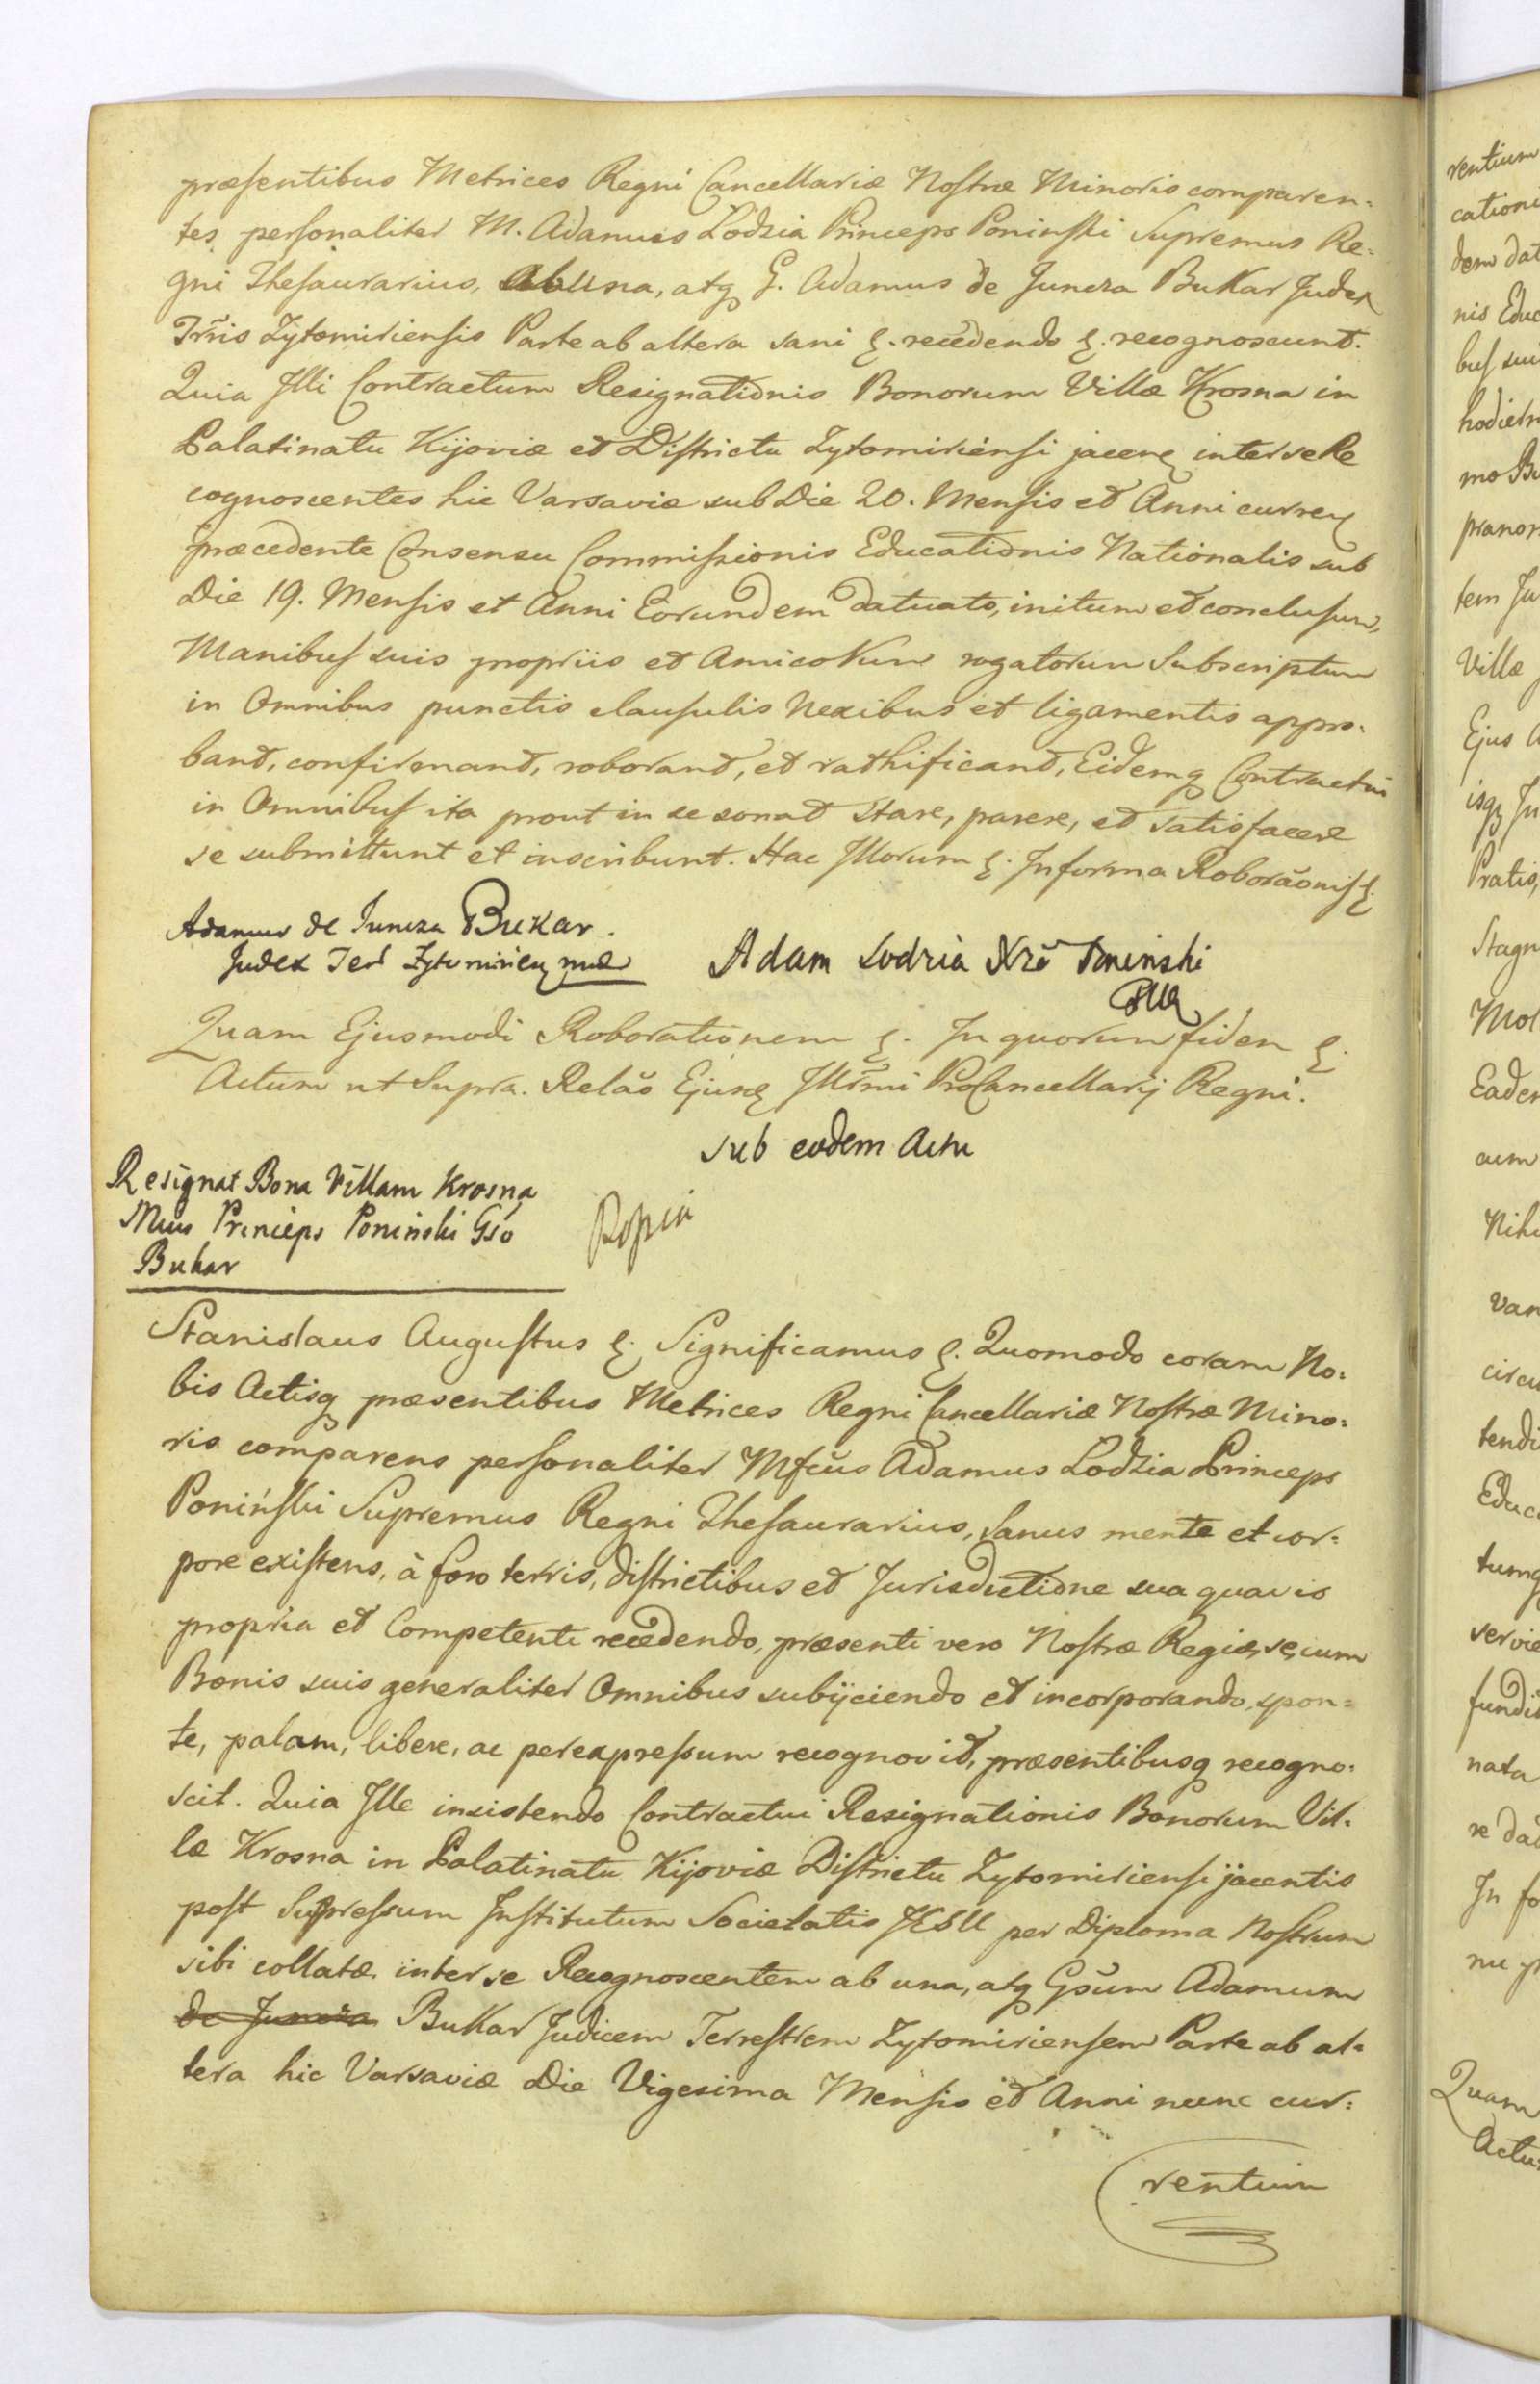 præsentibus Metrices Regni Cancellariæ Nostræ Minoris comparen:
tes personaliter M. Adamus Lodzia Princeps Poninski Supremus Re:
gni Thesaurarius, ab una, atq G. Adamus de Juncza Bukar Judex
Trris Zytomiriensis Parte ab altera sani &. recedendo &. recognoscunt.
Quia Illi Contractum Resignationis Bonorum Villæ Krosna in
Palatinatu Kijoviæ et Districtu Zytomiriensi jacen inter se Re
cognoscentes hic Varsaviæ sub Die 20. Mensis et Anni curren
præcedente Consensu Commissionis Educationis Nationalis sub
Die 19. Mensis et Anni Eorundem datuato, initum et conclusum,
Manibus suis propriis et Amicorum rogatorum Subscriptum
in Omnibus punctis clausulis Nexibus et ligamentis appro:
bant, confirmant, roborant, et rathificant, Eidemq Contractui
in Omnibus ita prout in se sonat Stare, parere, et satisfacere
se submittunt et inscribunt. Hac Illorum &. In forma Roborãonis &.
Adamus de Juncza Bukar.
Judex Ter Zytomirien mp
Adam Lodzia Poninski
Quam Ejusmodi Roborationem &. In quorum fidem &.
Actum ut Supra. Relão Ejusd Illrmi ProCancellarij Regni.
sub eodem Actu
Resignat Bona Villam Krosna
Mcus Princeps Poninski Gso
Bukar
Stanislaus Augustus &. Significamus &. Quomodo coram No:
bis Actisq præsentibus Metrices Regni Cancellariæ Nostræ Mino:
ris comparens personaliter Mfcus Adamus Lodzia Princeps
Poniński Supremus Regni Thesaurarius, Sanus mente et cor:
pore existens, à foro terris, districtibus et Jurisdictione sua quavis
propria et Competenti recedendo, præsenti vero Nostræ Regiæ, se, cum
Bonis suis generaliter Omnibus subijciendo et incorporando, spon:
te, palam, libere, ac per expressum recognovit, præsentibusq recogno:
scit. Quia Ille insistendo Contractui Resignationis Bonorum Vil:
læ Krosna in Palatinatu Kijoviæ Districtu Zytomiriensi jacentis
post Supressum Institutum Societatis JESU per Diploma Nostrum
sibi collatæ inter se Recognoscentem ab una, atq Gsum Adamum
de Juncza Bukar Judicem Terrestrem Zytomiriensem Parte ab al:
tera hic Varsaviæ Die Vigesima Mensis et Anni nunc cur:
rentium